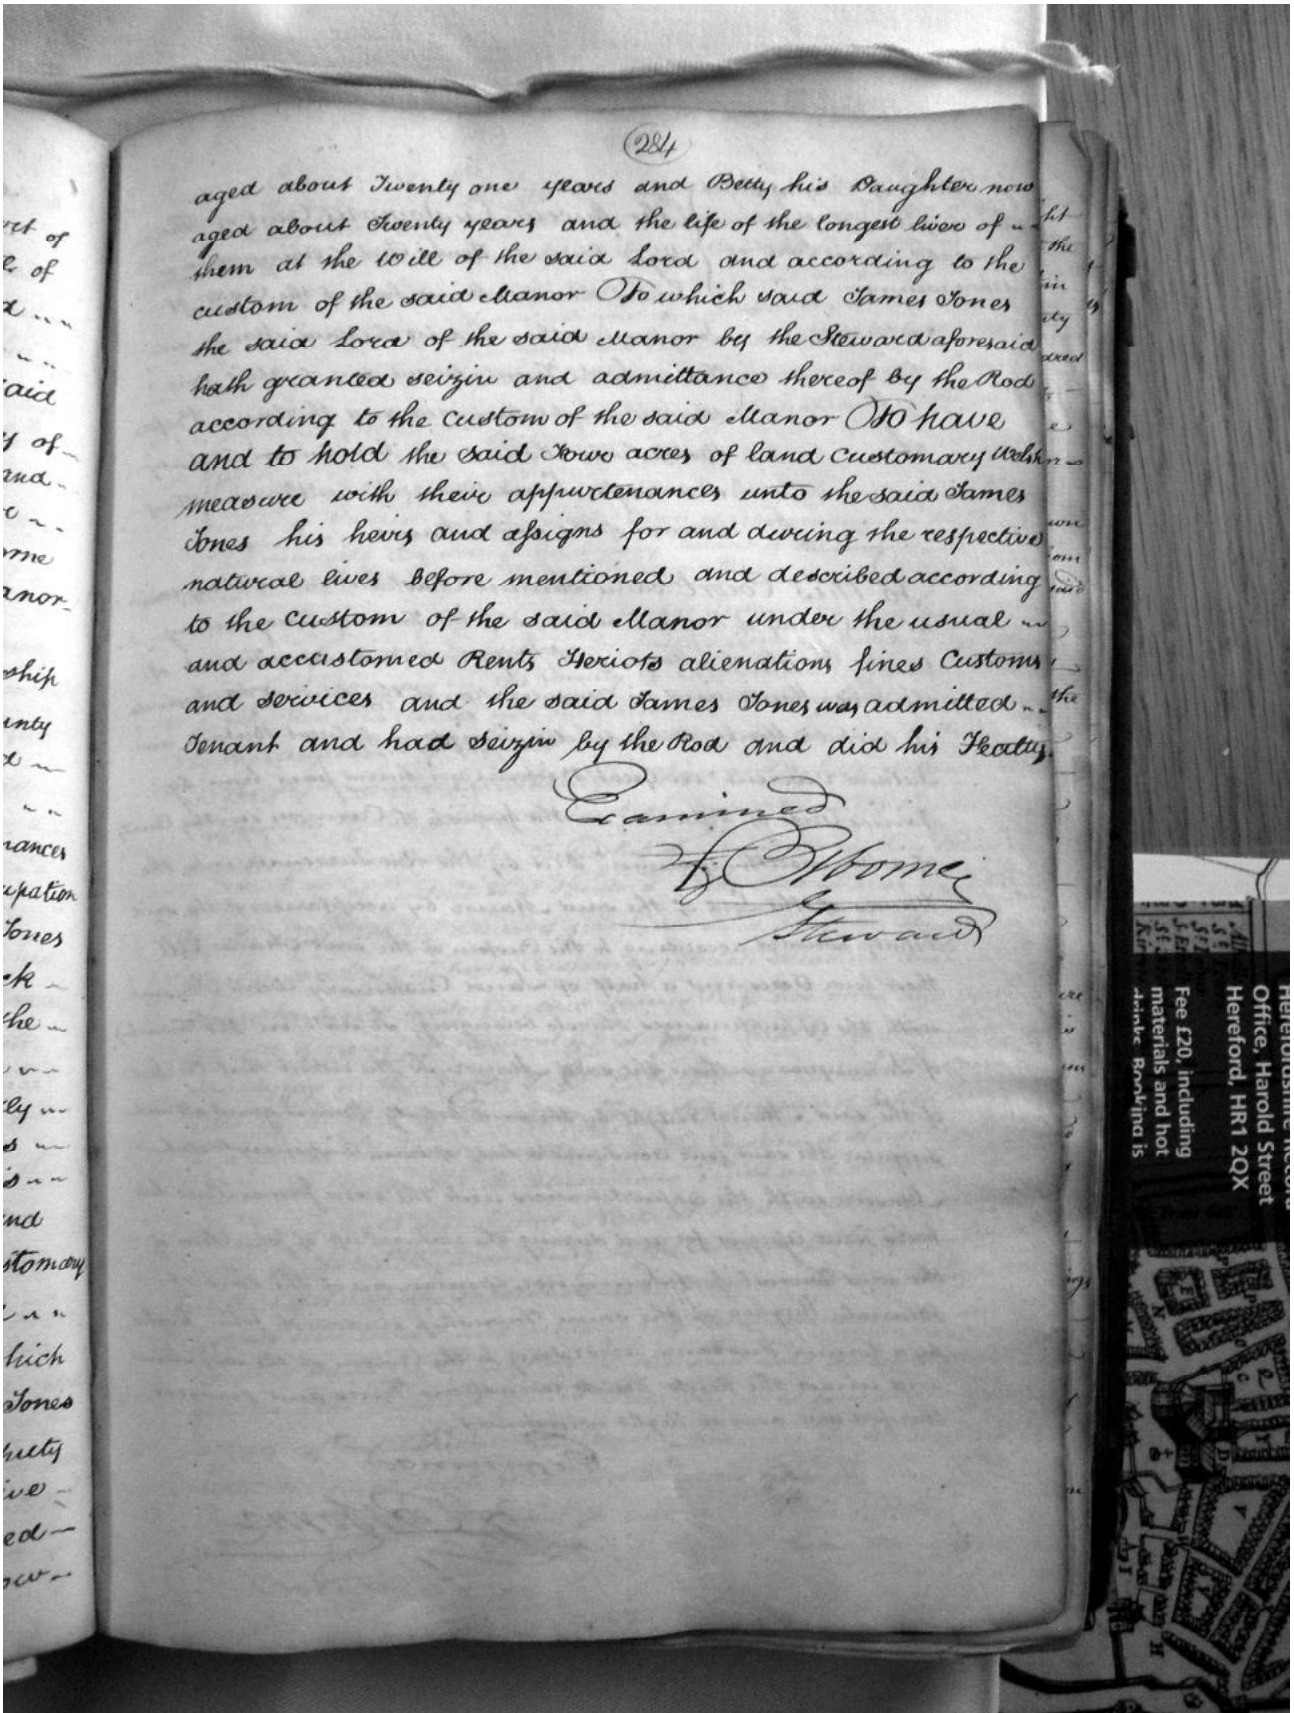 284
aged about Twenty one years and Betty his Daughter now
aged about Twenty years and the life of the longest liver of
them at the Will of the said Lord and according to the
custom of the said Manor To which said James Jones
the said Lord of the said Manor by the Steward aforesaid
hath granted seizin and admittance thereof by the Rod
according to the Custom of the said Manor To have
and to hold the said Four acres of land Customary Welsh
measure with their appurtenances unto the said James
Jones his heirs and assigns for and during the respective
natural lives before mentioned and described according
to the Custom of the said Manor under the usual
and accustomed Rents Heriots alienations fines Customs
and services and the said James Jones was admitted
Tenant and had Seizin by the Rod and did his Fealty
Examined
Steward
ship
nances
upation
Jones
stomary
hich
Jones
Herefordshire Record
Office, Harold Street
Hereford, HR1 2QX
Fee £20, including
materials and hot
drinks. Booking is